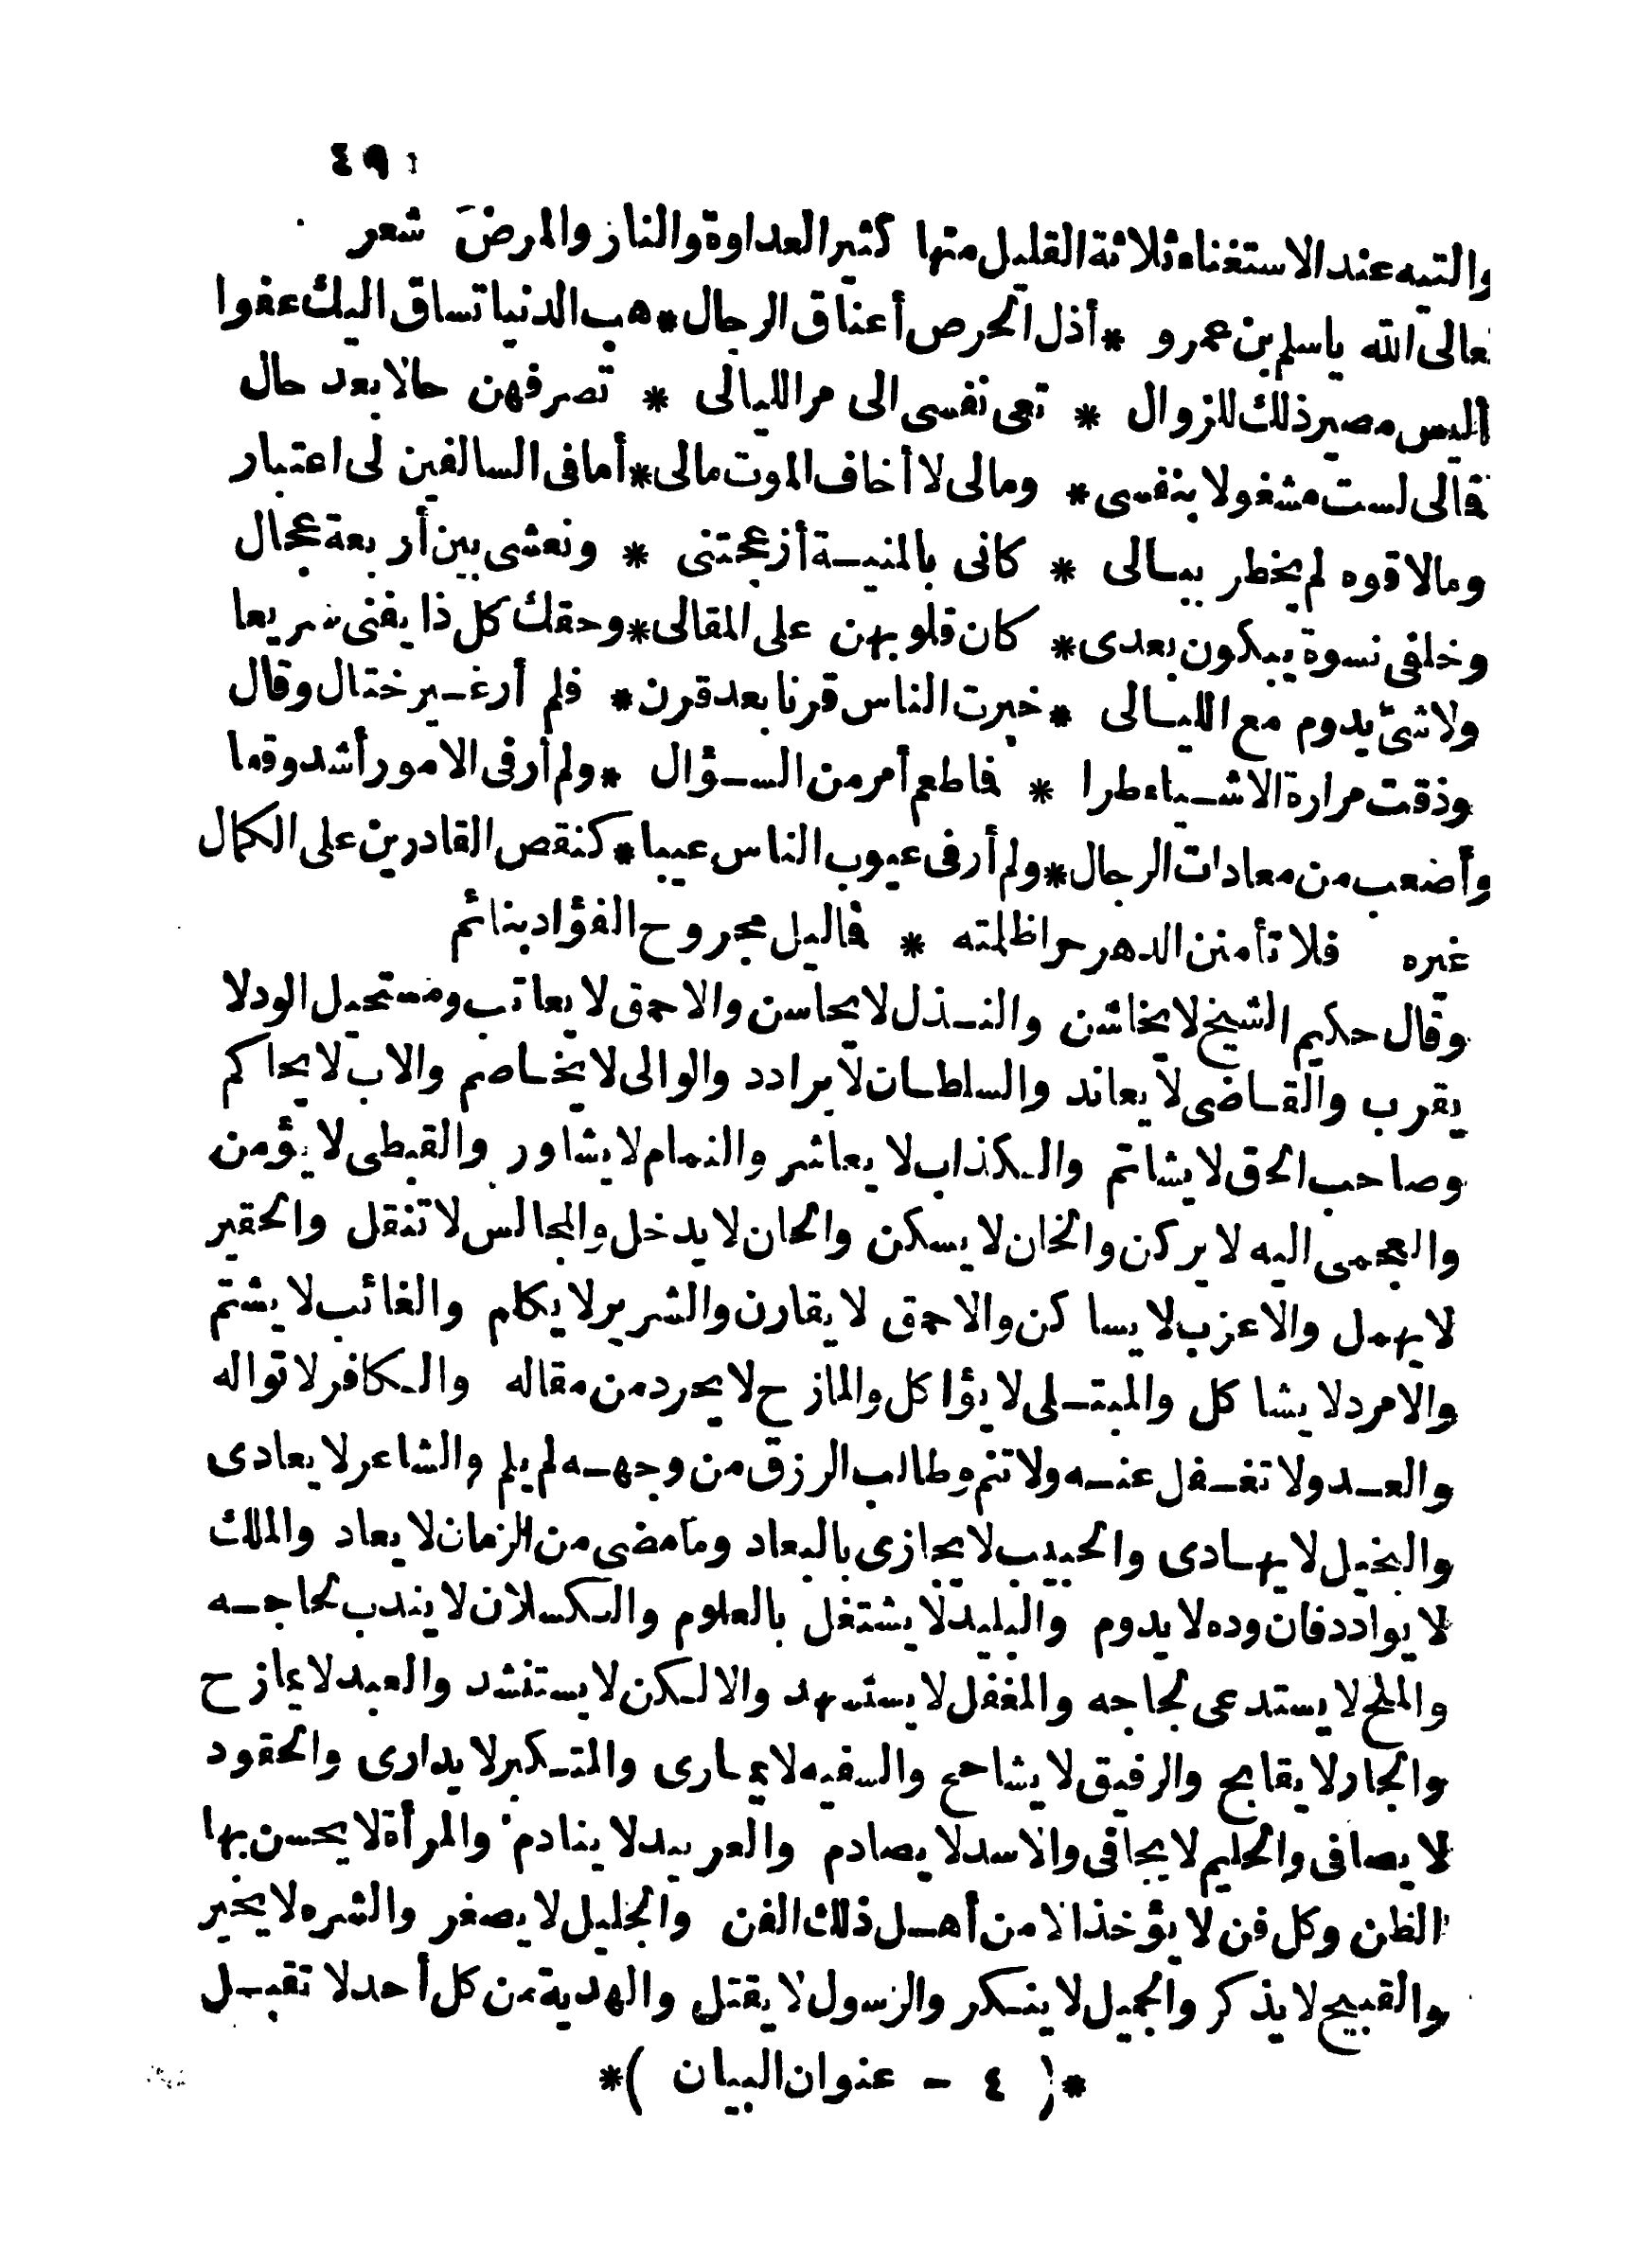 ٤٩
والتيه عند الاستغناء ثلاثة القليل منها كثير العداوة والنار والمرض شعر
تعالى الله ياسلم بن عمرو * أذل الحرص أعناق الرجال * هب الدنيا تساق اليك عفوا
أليس مصير ذلك للزوال * تعى نفسى الى مر الليالى * تصرفهن حالا بعد حال
فمالى لست مشغولا بنفسى * ومالى لا أخاف الموت مالى * أمافى السالفين لى اعتبار
ومالاقوه لم يخطر ببالى * كانى بالمنية أزعجتنى * ونعشى بين أربعة عجال
وخلفى نسوة يبكون بعدى * كان قلوبهن على المقالى * وحقك كل ذا يفنى سريعا
ولا شئ يدوم مع الليالى * خبرت الناس قرنا بعد قرن * فلم أر غير ختال وقال
وذقت مرارة الاشياء طرا * فاطعم أمر من السؤال * ولم أر فى الامور أشد وقعا
وأضعب من معادات الرجال * ولم أر فى عيوب الناس عيبا * كنقص القادرين على الكمال
غيره فلا تأمنن الدهر حرا ظلمته * فماليل مجروح الفؤاد بنائم
وقال حكيم الشيخ لا يخاشن والنذل لا يحاسن والاحمق لا يعاتب ومستحيل الود لا
يقرب والقاضى لا يعاند والسلطان لا يرادد والوالى لا يخاصم والاب لا يحاكم
وصاحب الحق لا يشاتم والكذاب لا يعاشر والنمام لا يشاور والقبطى لا يؤمن
والعجمى اليه لا يركن والخان لا يسكن والحان لا يدخل والمجالس لا تنقل والحقير
لا يهمل والاعزب لا يساكن والاحمق لا يقارن والشرير لا يكلم والغائب لا يشتم
والامرد لا يشاكل والمبتلى لا يؤاكل والمازح لا يحرد من مقاله والكافر لا تواله
والعدو لا تغفل عنه ولا تنم وطالب الرزق من وجهه لم يلم والشاعر لا يعادى
والبخيل لا يهادى والحبيب لا يجازى بالبعاد وما مضى من الزمان لا يعاد والملك
لا يوادد فان وده لا يدوم والبليد لا يشتغل بالعلوم والكسلان لا يندب لحاجه
والملح لا يستدعى لحاجه والمغفل لا يستشهد والالكن لا يستنشد والعبد لا يمازح
والجار لا يقابح والرفيق لا يشاحح والسفيه لا يمارى والمتكبر لا يدارى والحقود
لا يصافى والحليم لا يجافى والاسد لا يصادم والعربيد لا ينادم والمرأة لا يحسن بها
الظن وكل فن لا يؤخذ الا من أهل ذلك الفن والجليل لا يصغر والشره لا يخير
والقبيح لا يذكر والجميل لا ينكر والرسول لا يقتل والهدية من كل أحد لا تقبل
*( ٤ - عنوان البيان )*